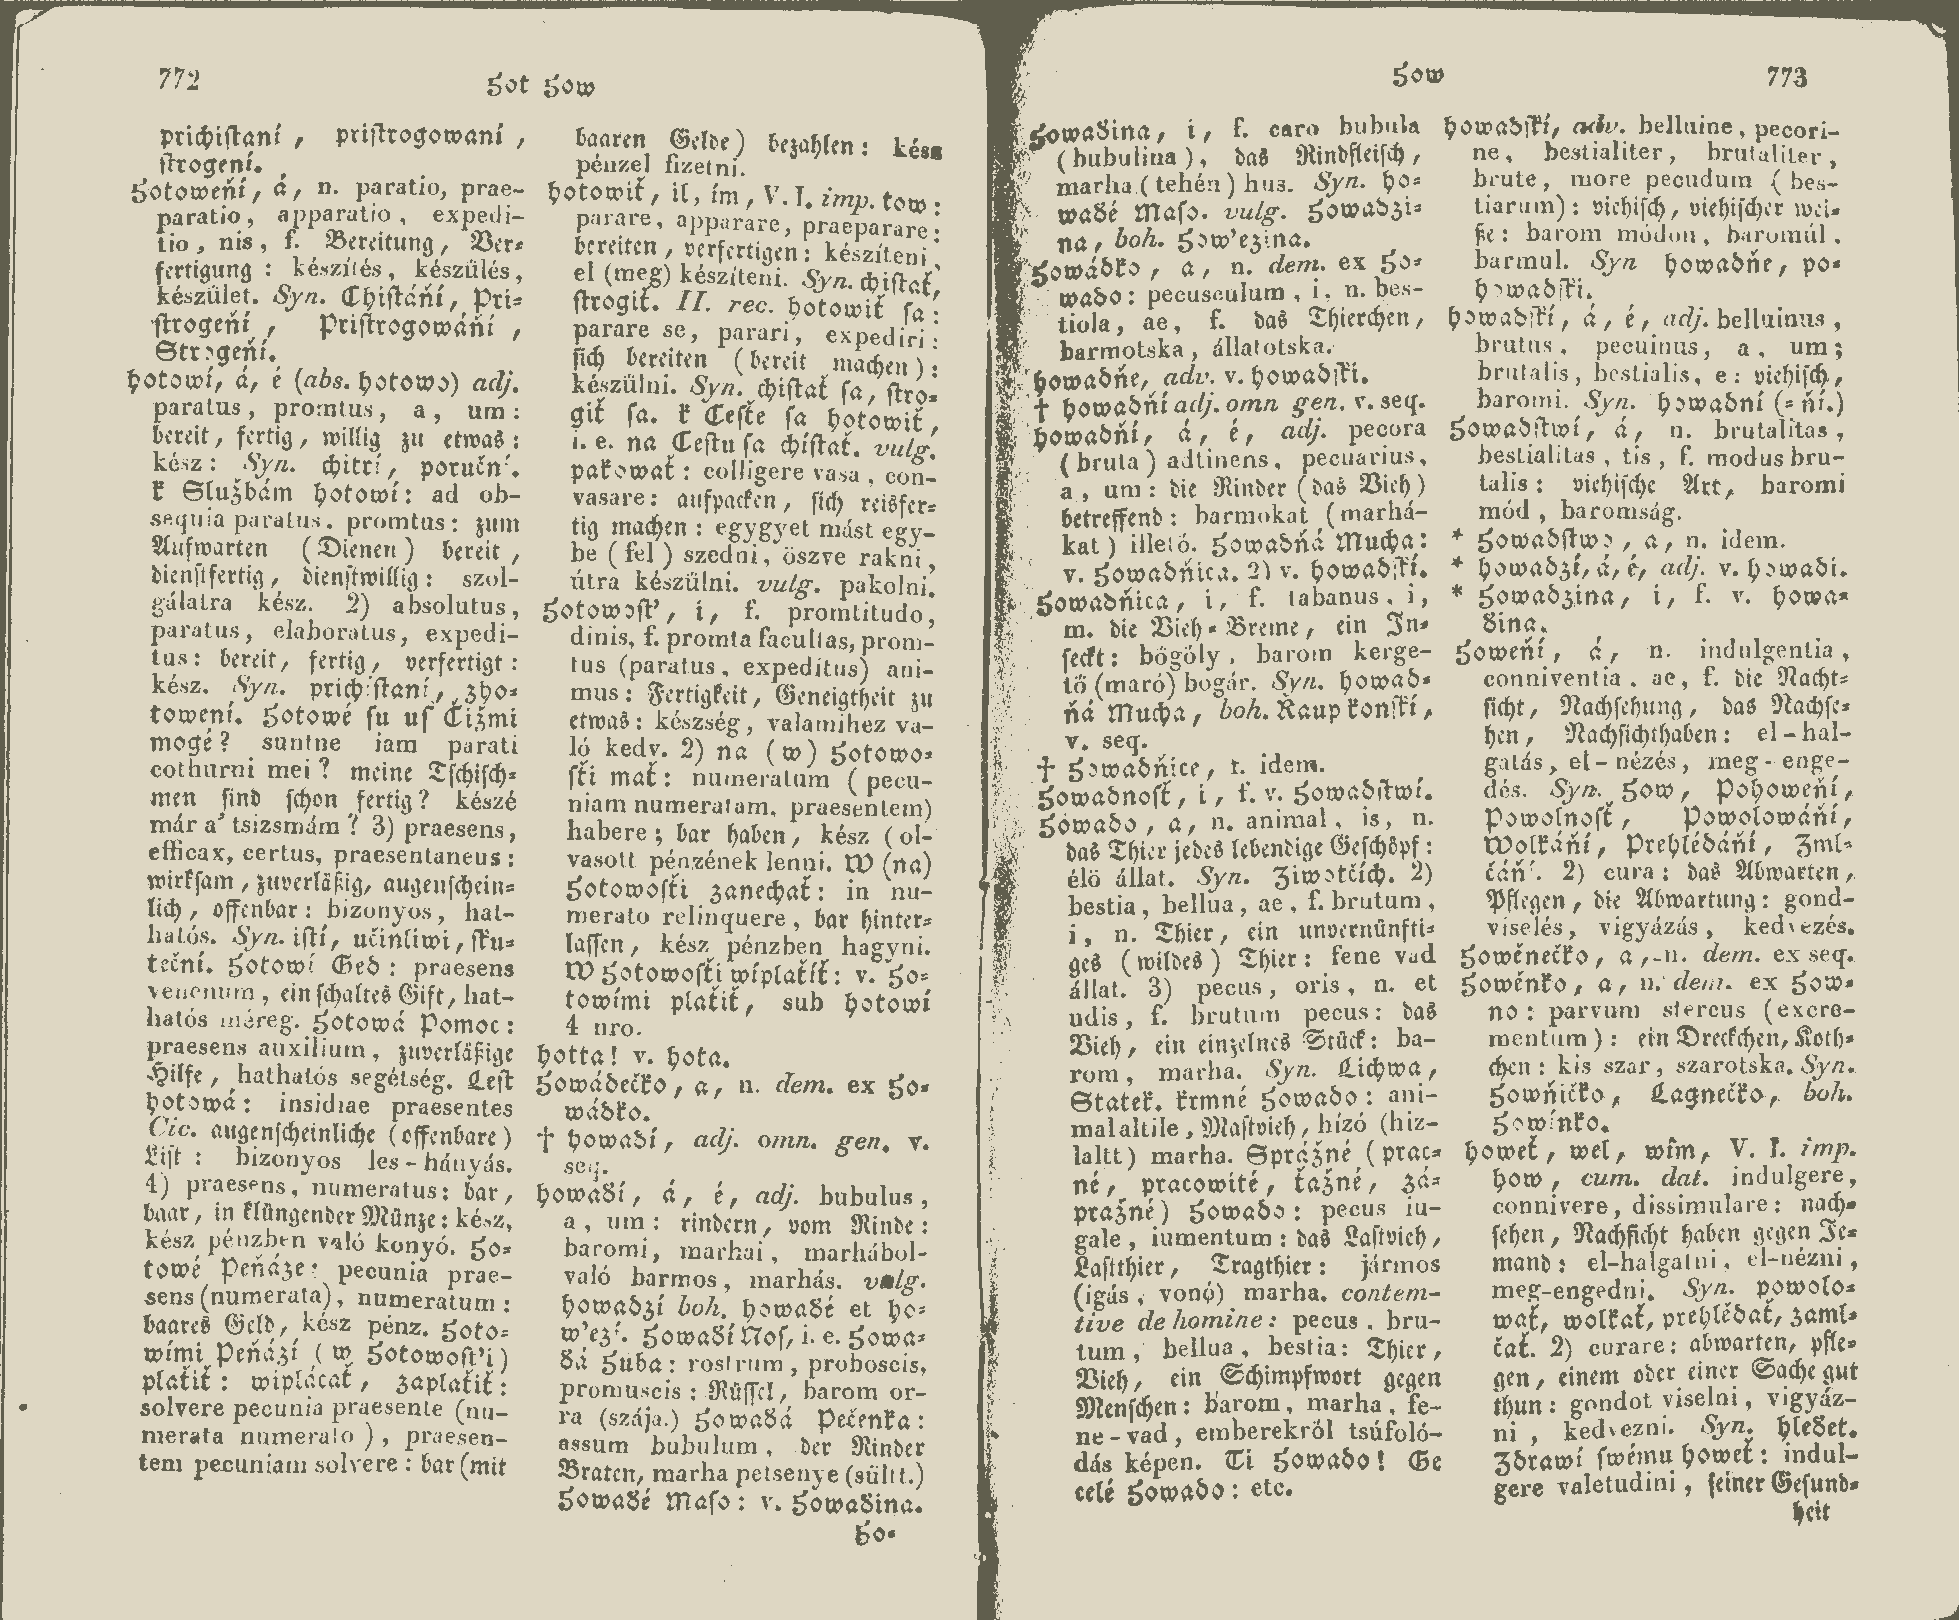 772
Hot How
prichistaní, pristrogowaní,
strogení.
Hotoweňí, á, n. paratio, prae-
paratio, apparatio, expedi-
tio, nis, f. Bereitung, Ver-
fertigung: készítés, készülés,
készület. Syn. Chistáňí, Pri-
strogeňí, Pristrogowáňí,
Strogeňí.
hotowí, á, é (abs. hotowo) adj.
paratus, promtus, a, um:
bereit, fertig, willig zu etwas:
kész: Syn. chitrí, poruční.
k Službám hotowí: ad ob-
sequia paratus. promtus: zum
Aufwarten (Dienen) bereit,
dienstfertig, dienstwillig: szol-
gálatra kész. 2) absolutus,
paratus, elaboratus, expedi-
tus: bereit, fertig, verfertigt:
kész. Syn. prichistaní, zho-
towení. Hotowé su us Čižmi
mogé? suntne iam parati
cothurni mei? meine Tschisch-
men sind schon fertig? készé
már a' tsizsmám? 3) praesens,
efficax, certus, praesentaneus:
wirksam, zuverläßig, augenschein-
lich, offenbar: bizonyos, hat-
hatós. Syn. istí, učinliwi, sku-
teční. Hotowí Ged: praesens
venenum, ein schaltes Gift, hat-
hatós méreg. Hotowá Pomoc:
praesens auxilium, zuverläßige
Hilfe, hathatós segétség. Lest
hotowá: insidiae praesentes
Cic. augenscheinliche (offenbare)
List: bizonyos les-hányás.
4) praesens, numeratus: bar,
baar, in klüngender Münze: kész,
kész pénzben való konyó. Ho-
towé Peňáze: pecunia prae-
sens (numerata), numeratum:
baares Geld, kész pénz. Hoto-
wími Peňází (w Hotowosťi)
plaťiť: wiplácať, zaplaťiť:
solvere pecunia praesente (nu-
merata numerato), praesen-
tem pecuniam solvere: bar (mit
baaren Gelde) bezahlen: kész
pénzel fizetni.
hotowiť, il, ím, V. I. imp. tow:
parare, apparare, praeparare:
bereiten, verfertigen: készíteni,
el (meg) készíteni. Syn. chistať,
strogiť. II. rec. hotowiť sa:
parare se, parari, expediri:
sich bereiten (bereit machen):
készülni. Syn. chistať sa, stro-
giť sa. k Cesťe sa hotowiť,
i. e. na Cestu sa chístať. vulg.
pakowať: colligere vasa, con-
vasare: aufpacken, sich reisfer-
tig machen: egygyet mást egy-
be (fel) szedni, öszve rakni,
útra készülni. vulg. pakolni.
Hotowosť, i, f. promtitudo,
dinis, f. promta facultas, prom-
tus (paratus, expeditus) ani-
mus: Fertigkeit, Geneigtheit zu
etwas: készség, valamihez va-
ló kedv. 2) na (w) Hotowo-
sťi mať: numeratum (pecu-
niam numeratam, praesentem)
habere; bar haben, kész (ol-
vasott pénzének lenni. W (na)
Hotowosťi zanechať: in nu-
merato relinquere, bar hinter-
lassen, kész pénzben hagyni.
W Hotowosťi wíplaťíť: v. Ho-
towími plaťiť, sub hotowí
4 nro.
hotta! v. hota.
Howádečko, a, n. dem. ex Ho-
wádko.
† howaďí, adj. omn. gen. v.
seq.
howäďí, á, é, adj. bubulus,
a, um: rindern, vom Rinde:
baromi, marhai, marhából-
való barmos, marhás. vulg.
howadzí boh. howaďé et ho-
w'ezí. Howaďí Nos, i. e. Howa-
ďá Huba: rostrum, proboscis,
promuscis: Rüssel, barom or-
ra (szája.) Howaďá Pečenka:
assum bubulum, der Rinder
Braten, marha petsenye (sültt.)
Howaďé Maso: v. Howaďina.
Ho-
How
773
Howaďina, i, f. caro bubula
(bubulina), das Rindfleisch,
marha (tehén) hus. Syn. ho-
waďé Maso. vulg. Howadzi-
na, boh. How'ezina.
Howádko, a, n. dem. ex Ho-
wado: pecusculum, i, n. bes-
tiola, ae, f. das Thierchen,
barmotska, állatotska.
* howadňe, adv. v. howadski.
† howadňí adj. omn gen. v. seq.
howadňí, á, é, adj. pecora
(bruta) adtinens, pecuarius,
a, um: die Rinder (das Vieh)
betreffend: barmokat (marhá-
kat) illető. Howadňá Mucha:
v. Howadňica. 2) v. howadskí.
Howadňica, i, f. tabanus, i,
m. die Vieh-Breme, ein In-
seckt: bögöly, barom kerge-
tő (maró) bogár. Syn. howad-
ňá Mucha, boh. Kaup konskí,
v. seq.
† Howadňice, f. idem.
Howadnosť, i, f. v. Howadstwí.
Howado, a, n. animal, is, n.
das Thier jedes lebendige Geschöpf:
élö állat. Syn. Ziwotčích. 2)
bestia, bellua, ae, f. brutum,
i, n. Thier, ein unvernünfti-
ges (wildes) Thier: fene vad
állat. 3) pecus, oris, n. et
udis, f. brutum pecus: das
Vieh, ein einzelnes Stück: ba-
rom, marha. Syn. Lichwa,
Statek. krmné Howado: ani-
mal altile, Mastvieh, hízó (hiz-
laltt) marha. Sprážné (prac-
né, pracowité, ťažné, zá-
pražné) Howado: pecus iu-
gale, iumentum: das Lastvieh,
Lastthier, Tragthier: jármos
(igás, vonó) marha. contem-
tive de homine: pecus, bru-
tum, bellua, bestia: Thier,
Vieh, ein Schimpfwort gegen
Menschen: barom, marha, fe-
ne-vad, emberekröl tsúfoló-
dás képen. Ti Howado! Ge
celé Howado: etc.
howadskí, adv. belluine, pecori-
ne, bestialiter, brutaliter,
brute, more pecudum (bes-
tiarum): viehisch, viehischer wei-
ße: barom módon, baromúl,
barmul. Syn howadňe, po-
howadski.
howadskí, á, é, adj. belluinus,
brutus, pecuinus, a, um;
brutalis, bestialis, e: viehisch,
baromi. Syn. howadní (-ňí.)
Howadstwí, á, n. brutalitas,
bestialitas, tis, f. modus bru-
talis: viehische Art, baromi
mód, baromság.
* Howadstwo, a, n. idem.
* howadzí, á, é, adj. v. howadi.
* Howadzina, i, f. v. howa-
ďina.
Howeňí, á, n. indulgentia,
conniventia, ae, f. die Nacht-
sicht, Nachsehung, das Nachse-
hen, Nachsichthaben: el-hal-
gatás, el-nézés, meg-enge-
dés. Syn. How, Pohoweňí,
Powolnosť, Powolowáňí,
Wolkáňí, Prehlédáňí, Zml-
čáňí. 2) cura: das Abwarten,
Pflegen, die Abwartung: gond-
viselés, vigyázás, kedvezés.
Howěnečko, a, n. dem. ex seq.
Howénko, a, n. dem. ex How-
no: parvum stercus (excre-
mentum): ein Dreckchen, Koth-
chen: kis szar, szarotska. Syn.
Howňičko, Lagnečko, boh.
Howínko.
howeť, wel, wím, V. I. imp.
how, cum. dat. indulgere,
connivere, dissimulare: nach-
sehen, Nachsicht haben gegen Je-
mand: el-halgatni, el-nézni,
meg-engedni. Syn. powolo-
wať, wolkať, prehlédať, zaml-
čať. 2) curare: abwarten, pfle-
gen, einem oder einer Sache gut
thun: gondot viselni, vigyáz-
ni, kedvezni. Syn. hleďet.
Zdrawí swému howeť: indul-
gere valetudini, seiner Gesund-
heit